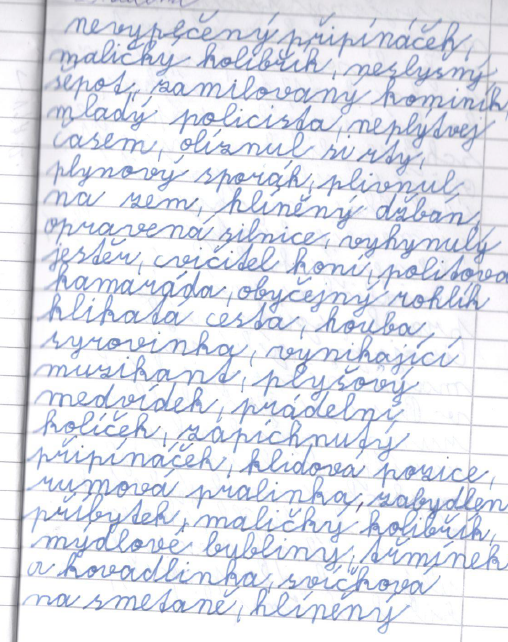 nevypěčený připínáček,
maličký kolibřík, neslyšný
šepot, zamilovaný kominík,
mladý policista, neplýtvej
časem, olíznul si rty,
plynový sporák, plivnul
na zem, hliněný džbán,
opravená silnice, vyhynulý
ještěr, cvičitel koní, politova
kamaráda, obyčejný rohlík
klikatá cesta, houba,
syrovinka, vynikající
muzikant, plyšový
medvídek, prádelní
kolíček, zapíchnutý
připínáček, klidová pozice,
rumová pralinka, zabydlen
příbytek, maličký kolibřík,
mýdlové bybliny, třmínek
a kovadlinka, svíčková
na smetaně, hlíněný